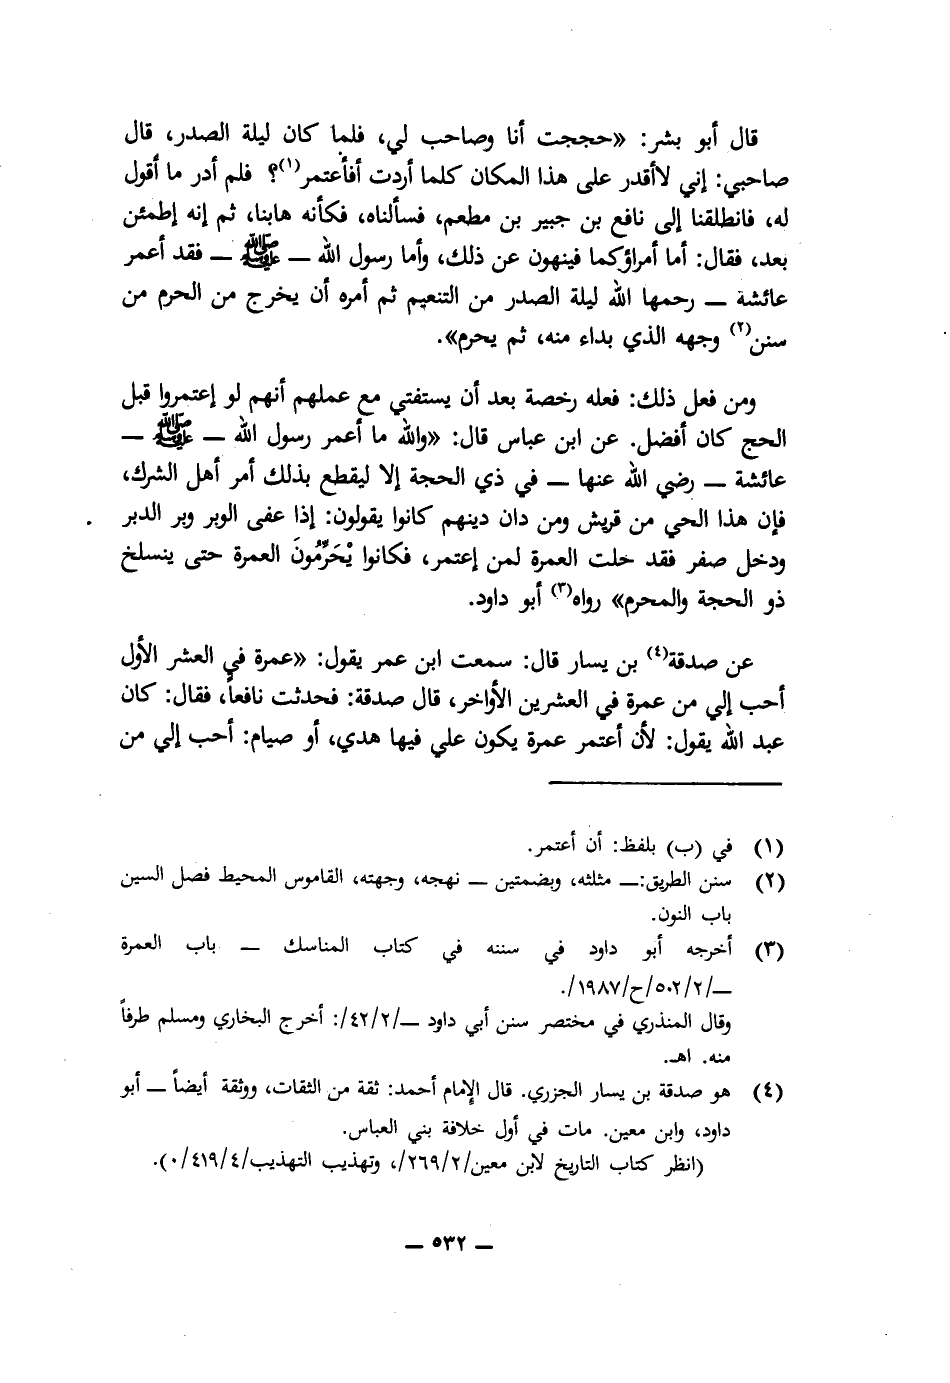 قال أبو بشر: «حججت أنا وصاحب لي، فلما كان ليلة الصدر، قال
صاحبي: إني لاأقدر على هذا المكان كلما أردت أفأعتمر(١)؟ فلم أدر ما أقول
له، فانطلقنا إلى نافع بن جبير بن مطعم، فسألناه، فكأنه هابنا، ثم إنه إطمئن
بعد، فقال: أما أمراؤكما فينهون عن ذلك، وأما رسول الله — ﷺ — فقد أعمر
عائشة — رحمها الله ليلة الصدر من التنعيم ثم أمره أن يخرج من الحرم من
سنن(٢) وجهه الذي بداء منه، ثم يحرم».
ومن فعل ذلك: فعله رخصة بعد أن يستفتي مع عملهم أنهم لو إعتمروا قبل
الحج كان أفضل. عن ابن عباس قال: «والله ما أعمر رسول الله — ﷺ —
عائشة — رضي الله عنها — في ذي الحجة إلا ليقطع بذلك أمر أهل الشرك،
فإن هذا الحي من قريش ومن دان دينهم كانوا يقولون: إذا عفى الوبر وبر الدبر
ودخل صفر فقد حلت العمرة لمن إعتمر، فكانوا يُحَرِّمُونَ العمرة حتى ينسلخ
ذو الحجة والمحرم» رواه(٣) أبو داود.
عن صدقة(٤) بن يسار قال: سمعت ابن عمر يقول: «عمرة في العشر الأول
أحب إلي من عمرة في العشرين الأواخر، قال صدقة: فحدثت نافعاً، فقال: كان
عبد الله يقول: لأن أعتمر عمرة يكون علي فيها هدي، أو صيام: أحب إلي من
(١) في (ب) بلفظ: أن أعتمر.
(٢) سنن الطريق:— مثلثه، وبضمتين — نهجه، وجهته، القاموس المحيط فصل السين
باب النون.
(٣) أخرجه أبو داود في سننه في كتاب المناسك — باب العمرة
—/٥٠٢/٢/ح/١٩٨٧/.
وقال المنذري في مختصر سنن أبي داود —/٤٢/٢/: أخرج البخاري ومسلم طرفاً
منه. اهـ.
(٤) هو صدقة بن يسار الجزري. قال الإمام أحمد: ثقة من الثقات، ووثقة أيضاً — أبو
داود، وابن معين. مات في أول خلافة بني العباس.
(انظر كتاب التاريخ لابن معين/٢٦٩/٢/، وتهذيب التهذيب/٤١٩/٤/٠).
— ٥٣٢ —